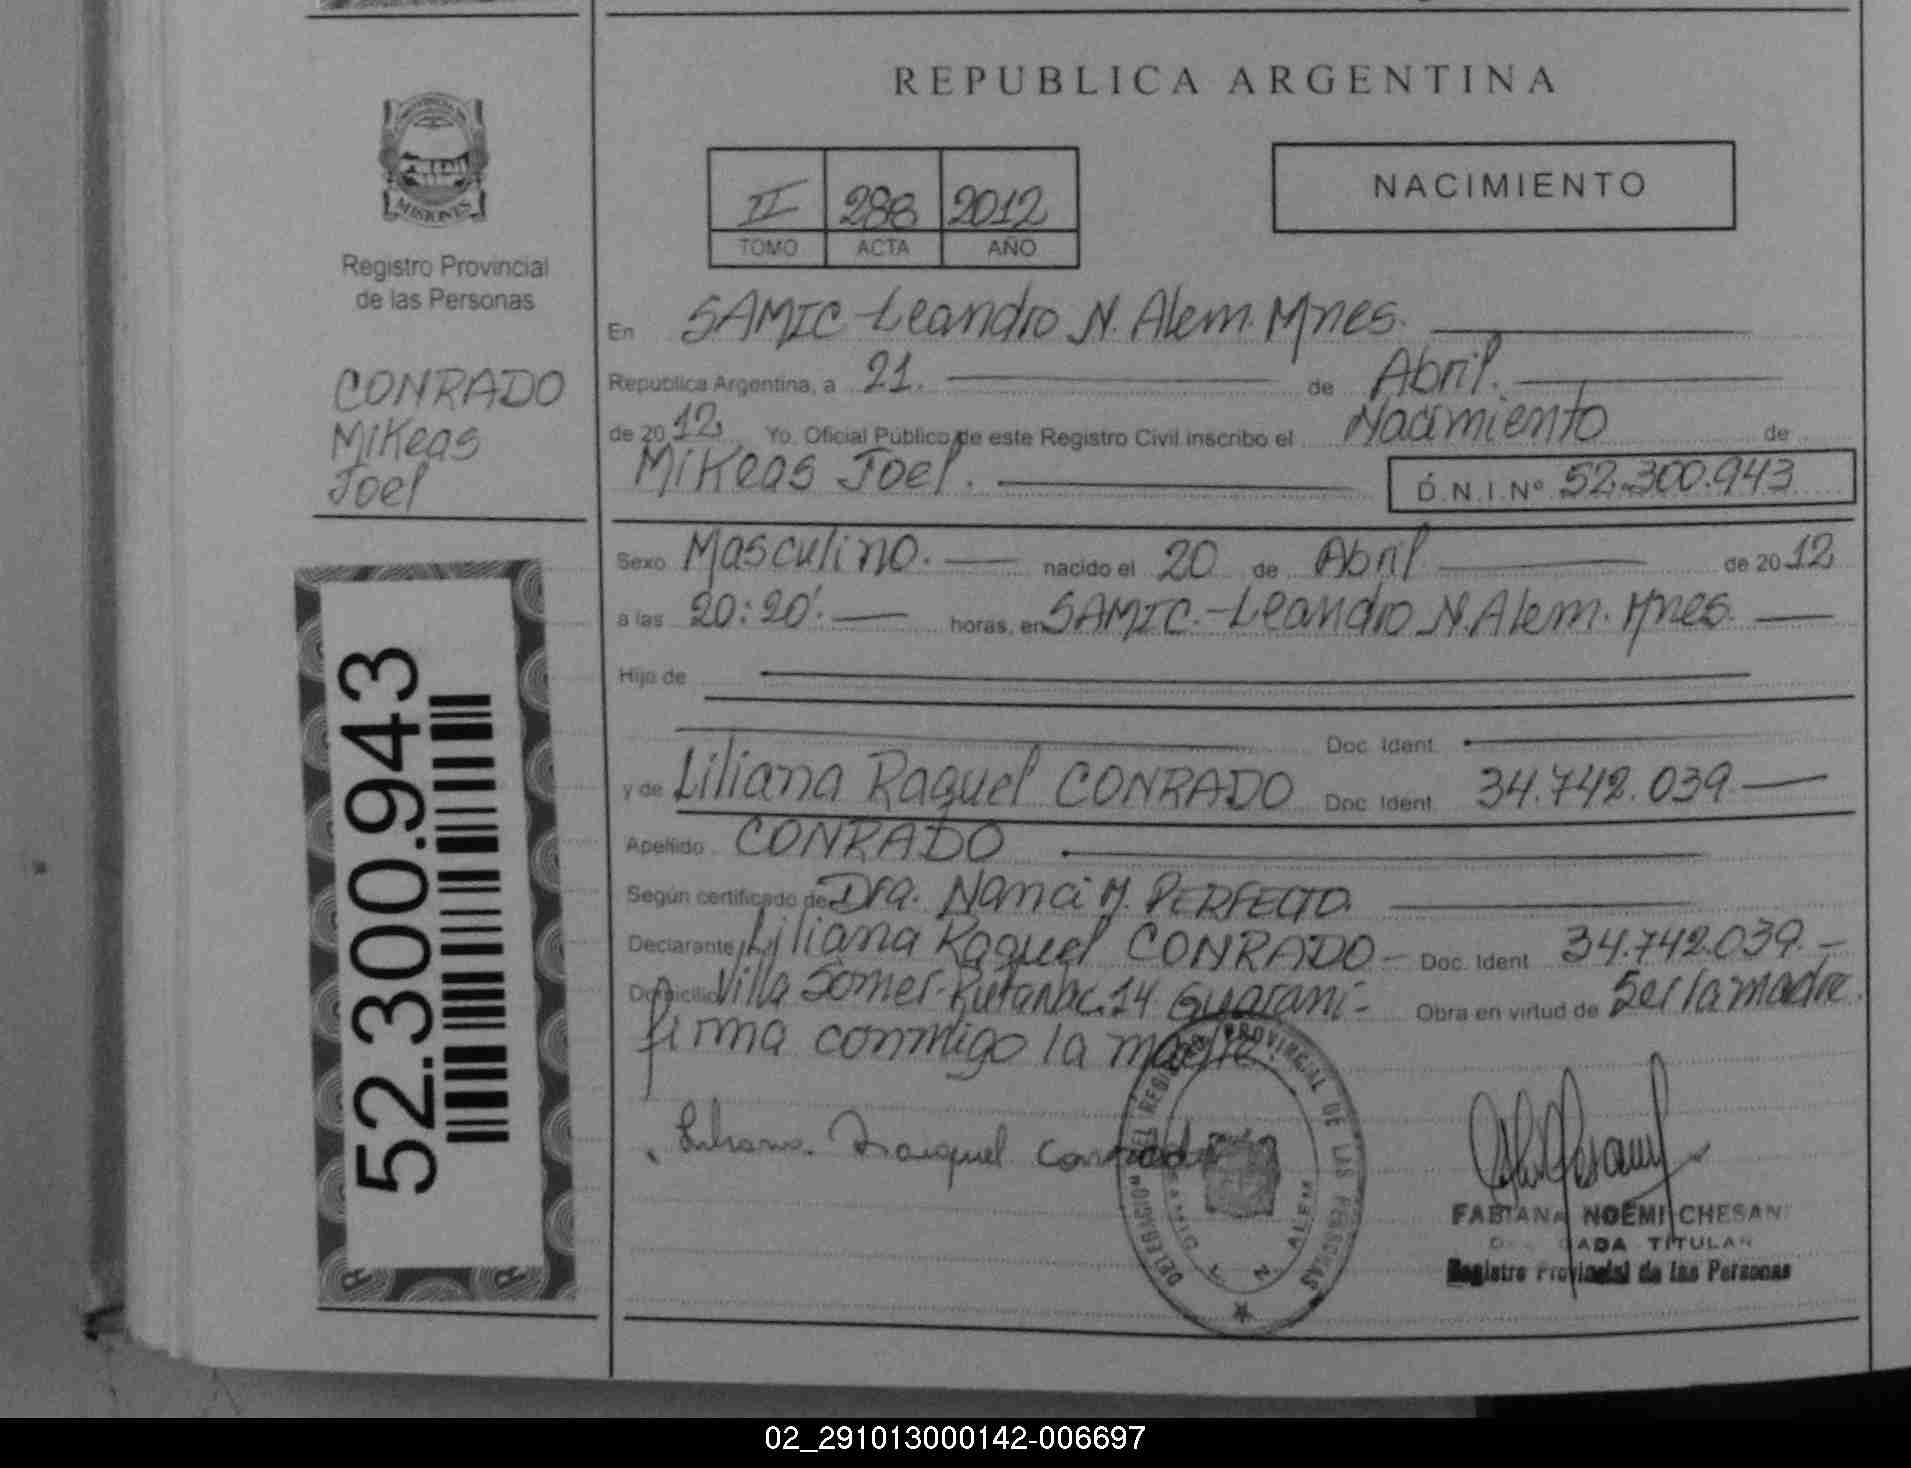 REPUBLICA ARGENTINA
MISIONES
Registro Provincial
de las Personas
CONRADO
Mikeas
Joel
52.300.943
II 288 2012
TOMO ACTA AÑO
NACIMIENTO
En SAMIC-Leandro N. Alem. Mnes.
Republica Argentina, a 21. de Abril.
de 2012, Yo, Oficial Público de este Registro Civil inscribo el Nacimiento de
Mikeas Joel. D.N.I.Nº 52.300.943
Sexo Masculino. nacido el 20 de Abril de 2012
a las 20:20'. horas, en SAMIC.-Leandro N. Alem. Mnes.
Hijo de
Doc. Ident.
y de Liliana Raquel CONRADO Doc. Ident. 34.742.039
Apellido CONRADO
Según certificado de Dra. Nanci M. PERFECTO.
Declarante Liliana Raquel CONRADO - Doc. Ident 34.742.039.-
Domicilio Villa Somer-Ruta Nac.14 Guaraní- Obra en virtud de Ser la madre.
firma conmigo la madre.
Liliana Raquel Conrado
DELEGACION DEL REGISTRO PROVINCIAL DE LAS PERSONAS
L. N. ALEM
FABIANA NOEMI CHESANI
TITULAR
Registro Provincial de las Personas
02_291013000142-006697